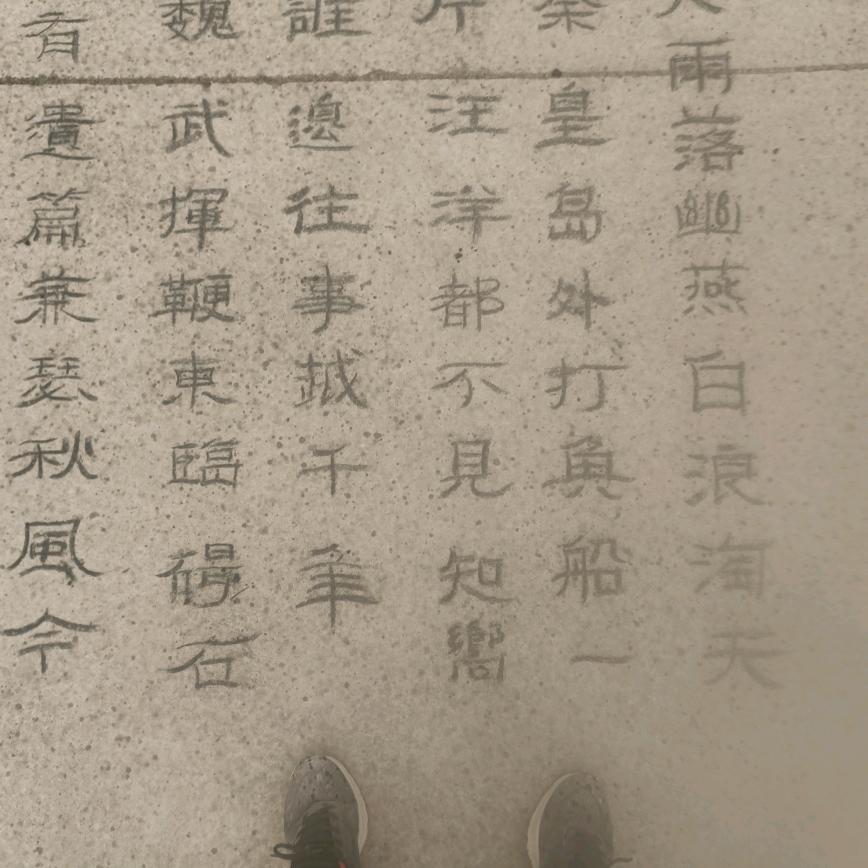 大雨落幽燕白浪淘天
秦皇島外打魚船一
片汪洋都不見知嚮
誰邊往事越千年
魏武揮鞭東臨碣石
有遺篇蕭瑟秋風今